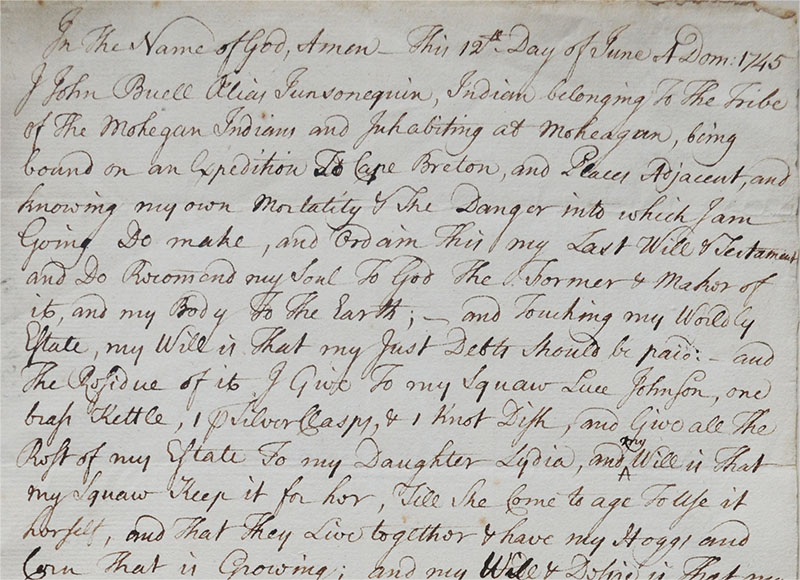 In The Name of God, Amen – This 12th Day of June A Dom: 1745
I John Buell Alias Junsonequin, Indian belonging To The Tribe
of The Mohegan Indians and Inhabiting at Moheagan, being
bound on an Expedition To Cape Breton, and Places Adjacent, and
knowing my own Mortatity & The Danger into which I am
Going Do make, and Ordain This my Last Will & Testament
and Do Recomend my Soul To God The Former & Maker of
it, and my Body To The Earth; – and Touching my Worldly
Estate, my Will is That my Just Debts should be paid: – and
The Residue of it I Give To my Squaw Luce Johnson, one
brass Kettle, 1 p Silver Clasps, & 1 Knot Dish, and Give all The
Rest of my Estate To my Daughter Lydia, and my Will is That
my Squaw Keep it for her, Till She Come to age To Use it
herself, and That They Live together & have my Hoggs and
Corn That is Growing; and my Will & Desire is That my